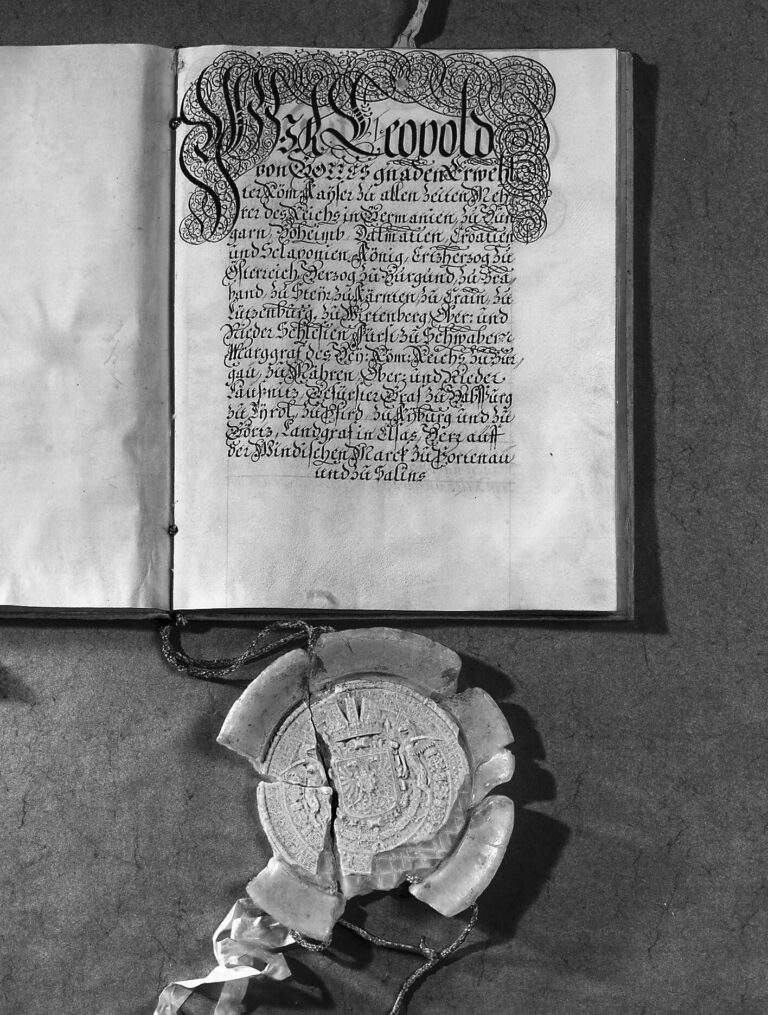 Wir Leopold
von GOTTES gnaden Erwehl
ter Röm: Kayser zu allen Zeiten Meh
rer des Reichs in Germanien, zu Hun
garn, Böheimb, Dalmatien, Croatien
und Sclavonien, König, Ertzherzog zu
Österreich, Herzog zu Burgund, zu Bra
band, zu Steÿr, zu Kärnten, zu Crain, zu
Lützenburg, zu Wirtenberg, Ober: und
Nieder Schlesien, Fürst zu Schwaben
Marggraf des Heÿ: Röm: Reichs, zu Bur
gau, zu Mähren, Ober: und Nieder
Laußnitz, Gefürster Graf zu Habspurg
zu Tÿrol, zu Pfird, zu Kÿburg und zu
Görtz, Landgraf in Elsas, Herr auff
der Windischen Marck, zu Portenau
und zu Salins